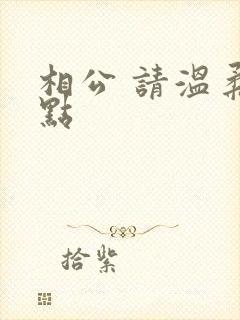 相公 請溫柔
點
拾紫